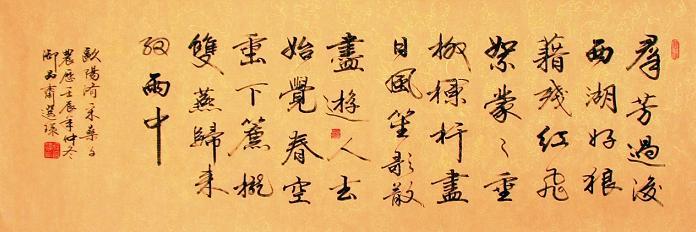 羣芳過後
西湖好狼
藉残红飛
絮濛々垂
柳欄杆盡
日風笙歌散
盡遊人去
始覺春空
垂下簾櫳
雙燕歸来
細雨中
歐陽脩采桑子
農歷壬辰年仲冬
御品齋